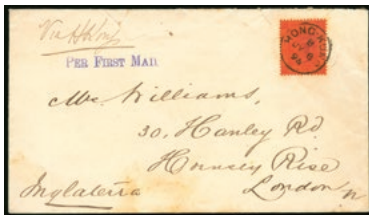 Via H Kong
PER FIRST MAIL
HONG KONG
96
Mr. Williams,
30, Hanley Rd
Hornsey Rise
London N
Inglaterra